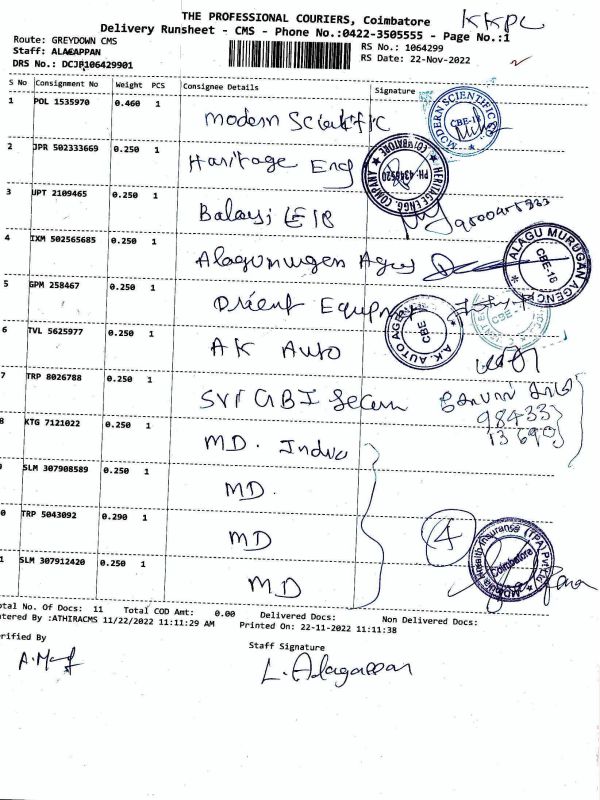 THE PROFESSIONAL COURIERS, Coimbatore
KKPC
Delivery Runsheet - CMS - Phone No.:0422-3505555 - Page No.:1
Route: GREYDOWN CMS
RS No.: 1064299
Staff: ALAGAPPAN
RS Date: 22-Nov-2022
DRS No.: DCJP106429901
S No Consignment No Weight PCS Consignee Details Signature
1 POL 1535970 0.460 1 Modern Scientific MODERN SCIENTIFIC CBE-18
2 JPR 502333669 0.250 1 Haritage Eng HERITAGE ENGG. COMPANY COIMBATORE PH: 4346520
3 JPT 2109465 0.250 1 Balaji
4 IXM 502565685 0.250 1 Alagumurugen ALAGU MURUGAN AGENCY CBE-18
5 GPM 258467 0.250 1 Orient
6 TVL 5625977 0.250 1 AK Auto A.K. AUTO AGENCY CBE
7 TRP 8026788 0.250 1 SVT
98433
13690
8 KTG 7121022 0.250 1 MD. India
SLM 307908589 0.250 1 MD
0 TRP 5043092 0.290 1 MD 4
1 SLM 307912420 0.250 1 MD MDIndia Health Insurance (TPA) Pvt.Ltd Coimbatore
otal No. Of Docs: 11 Total COD Amt: 0.00 Delivered Docs: Non Delivered Docs:
ntered By :ATHIRACMS 11/22/2022 11:11:29 AM Printed On: 22-11-2022 11:11:38
erified By
Staff Signature
L. Alagappan